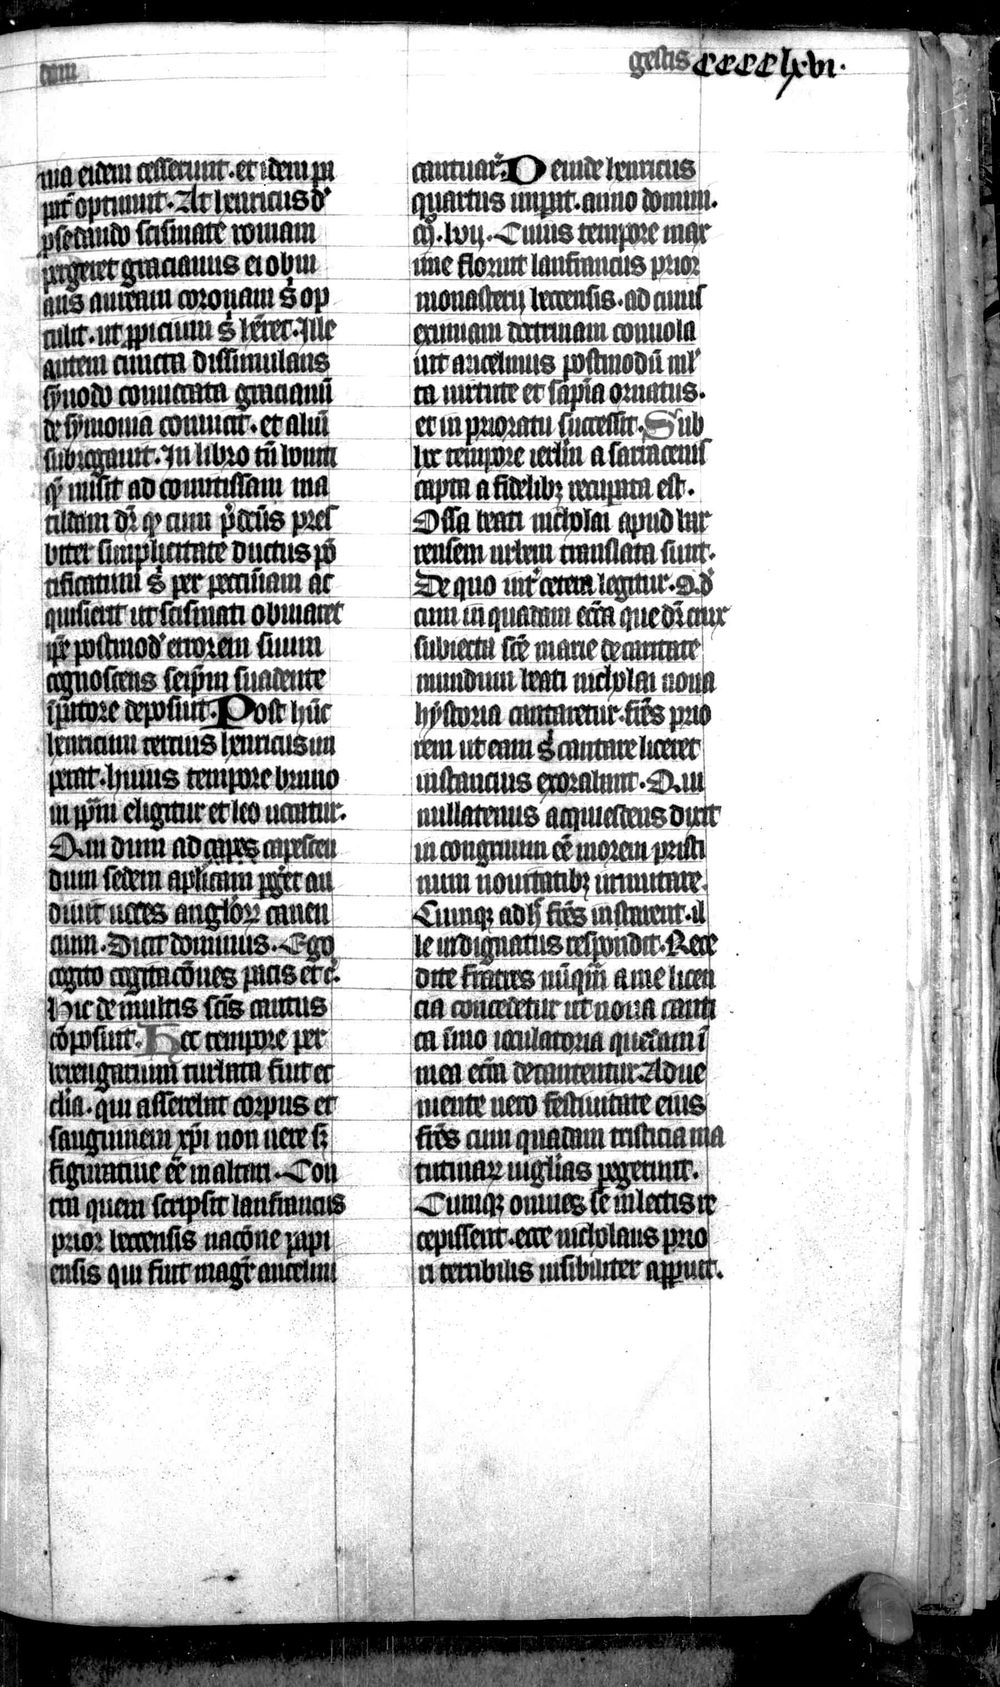 gestis CCCClxvi.
ma eidem cesserunt. et idem pa
pat optinuit. At henricus d'
psedando scismate romam
pergeret gracianus ei obui
ans auream coronam s; op
tulit. ut ppicium s; heret. Ille
autem cuncta dissimulans
synodo conuocata gracianū
de symonia conuicit. et aliū
subrogauit. In libro tn̄ boniti
qm̄ misit ad comitissam ma
tildam dr̄ q cum p̄dcūs pres
biter simplicitate ductus pō
tificatum s; per peccuniam ac
quisierit ut scismati obuiaret
ipe postmod' errorem suum
cognoscens seipm suadente
ipatore deposuit. Post hūc
henricum tercius henricus im
perat. huius tempore bruno
in ppam eligitur et leo uocatur.
Qui dum ad capes capescen
dum sedem aplicam pget au
diuit uoces anglorz canen
cium. Dicit dominus. Ego
cogito cogitacōnes pacis et c'.
Hic de multis scis cantus
cōposuit. Hoc tempore per
berengarium turbata fuit ec
clia. qui asserebat corpus et
sanguinem xpi non uere sz
figuratiue eē in altari. Con
tra quem scripsit lanfrancus
prior beccensis nacōne papi
ensis qui fuit magr ancelmi
cantuar'. Deinde henricus
quartus impat. anno domini.
Mo. lvij. Cuius tempore max
ime floruit lanfrancus prior
monasterij beccensis. ad cuius
eximiam doctrinam conuola
uit ancelmus postmodū ml'
ta uirtute et sapia ornatus.
et in prioratu successit. Sub
hoc tempore ierlm a sarracenis
capta a fidelibz recupata est.
Ossa beati nicholai apud bar
rensem urbem translata sunt.
De quo int' cetera legitur. Q. d'
cum in quadam eccia que dr crux
subiecta sce marie de caritate
nundum beati nicholai noua
hystoria cantaretur. fres prio
rem ut eam s; cantare liceret
instancius exorabant. Qui
nullatenus acquiescens dixit
incongruum eē morem pristi
num nouitatibz inmutare.
Cumqz ad h fres instarent. il
le indignatus respondit. Rece
dite fratres nūqm a me licen
cia concedetur ut noua canti
ca imo ioculatoria quedam i
mea eccia decantentur. Adue
niente uero festiuitate eius
fres cum quadam tristicia ma
tutinarz uiglias pegerunt.
Cumqz omnes se in lectis re
cepissent. ecce nicholaus prio
ri terribilis uisibiliter apparuit.